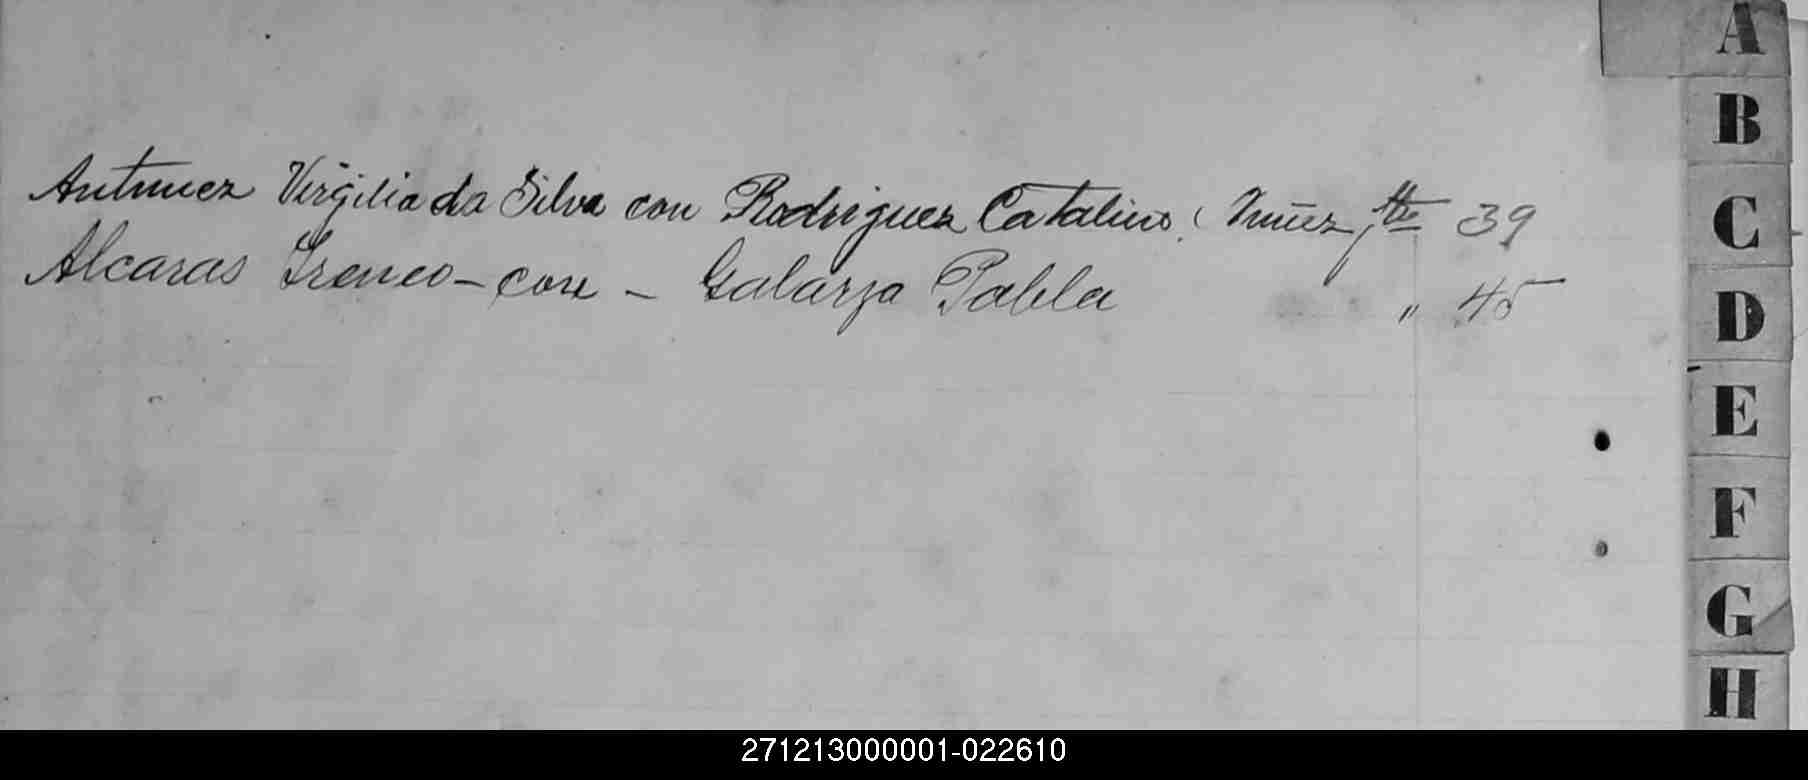 Antunez Virgilia da Silva con Rodriguez Catalino. (Nuñez) 39
Alcaras Ireneo - con - Galarza Pabla " 45
A
B
C
D
E
F
G
H
271213000001-022610